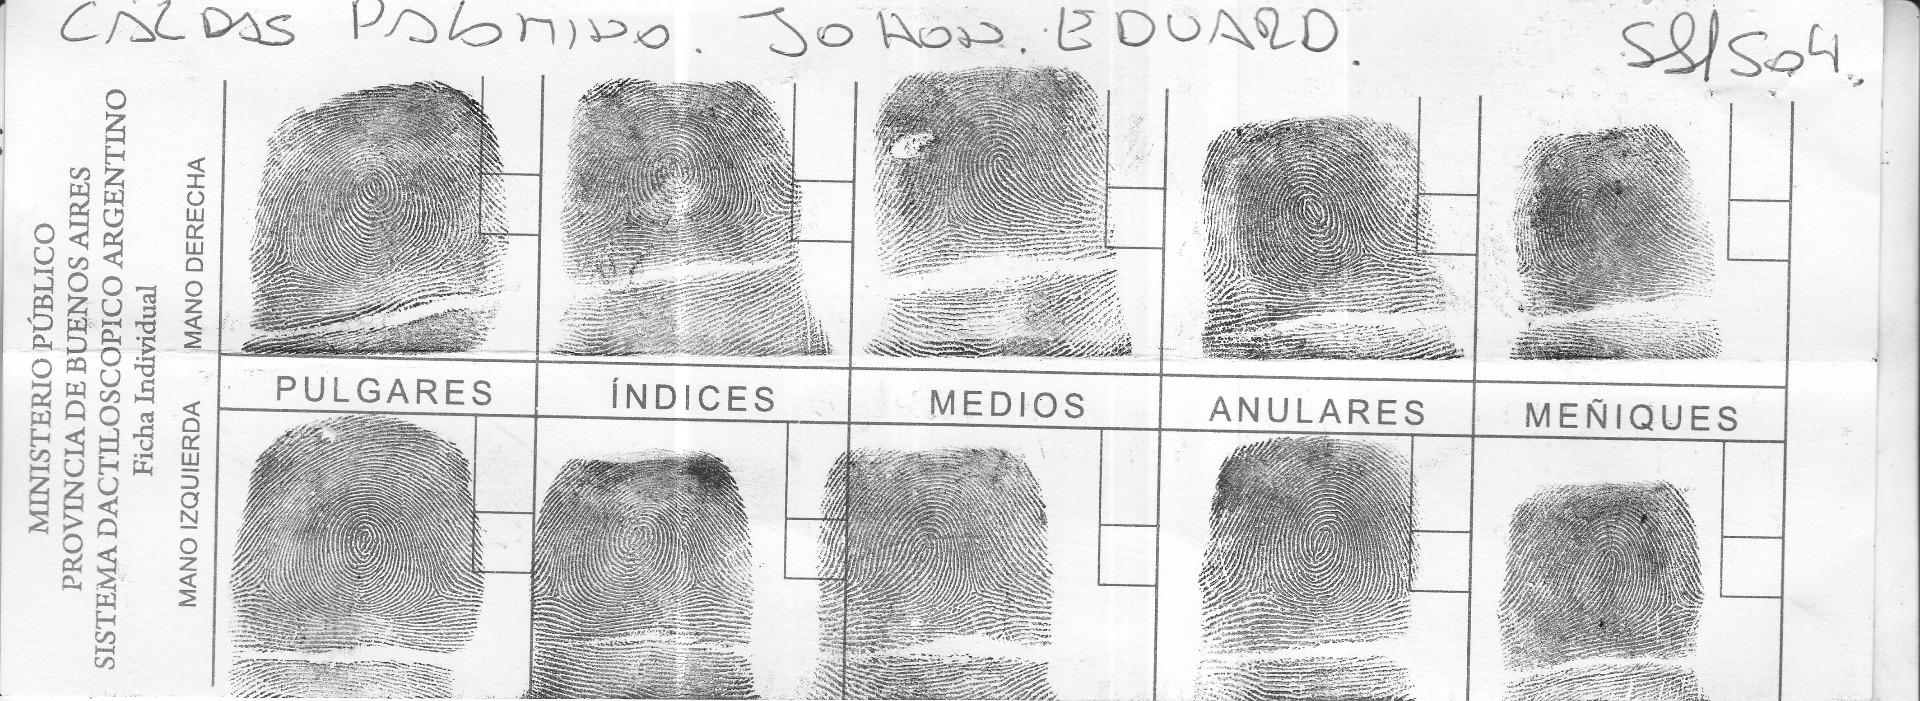 CALDAS PALOMINO. JOHON. EDUARD.
SS/504.
MINISTERIO PÚBLICO
PROVINCIA DE BUENOS AIRES
SISTEMA DACTILOSCOPICO ARGENTINO
Ficha Individual
MANO DERECHA
PULGARES ÍNDICES MEDIOS ANULARES MEÑIQUES
MANO IZQUIERDA